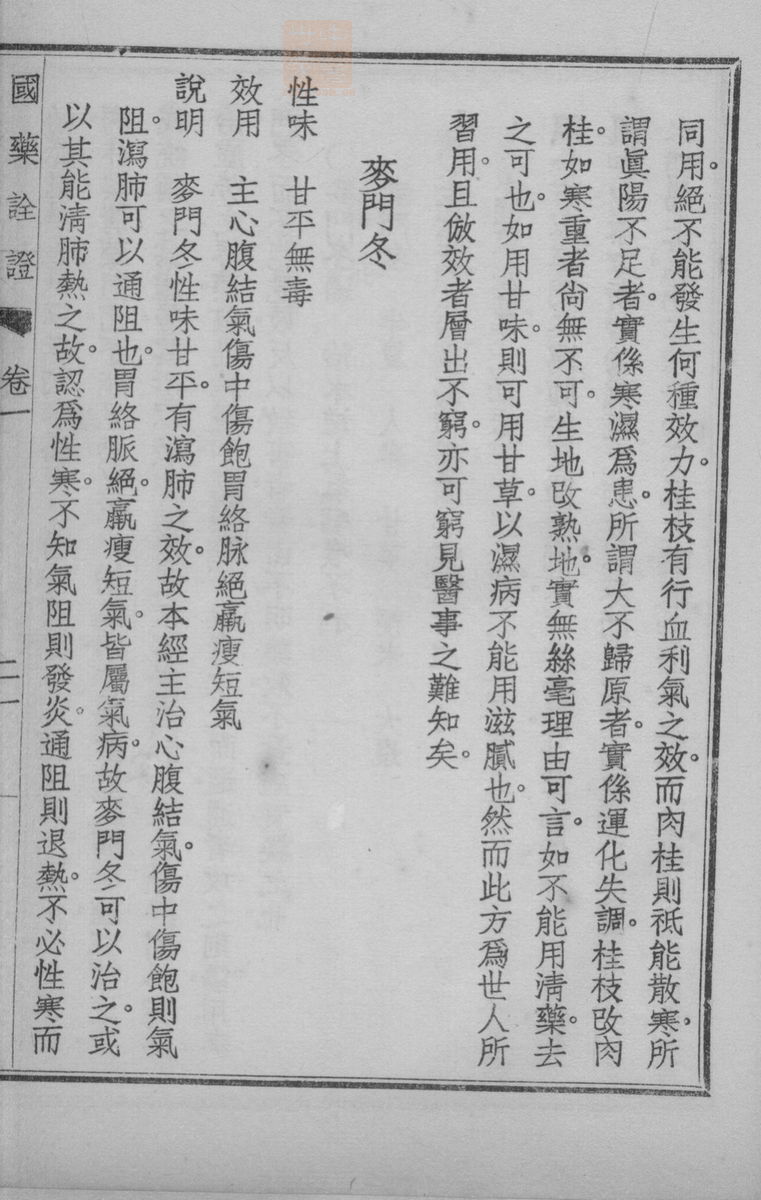 同用。絕不能發生何種效力。桂枝有行血利氣之效。而肉桂則祇能散寒。所
謂眞陽不足者。實係寒濕爲患。所謂大不歸原者。實係運化失調。桂枝改肉
桂。如寒重者尙無不可。生地改熟地。實無絲毫理由可言。如不能用淸藥。去
之可也。如用甘味。則可用甘草。以濕病不能用滋膩也。然而此方爲世人所
習用。且倣效者層出不窮。亦可窮見醫事之難知矣。
麥門冬
性味　甘平無毒
效用　主心腹結氣傷中傷飽胃絡脉絕羸瘦短氣
說明　麥門冬性味甘平。有瀉肺之效。故本經主治心腹結氣。傷中傷飽則氣
阻。瀉肺可以通阻也。胃絡脈絕。羸瘦短氣。皆屬氣病。故麥門冬可以治之。或
以其能淸肺熱之故。認爲性寒。不知氣阻則發炎。通阻則退熱。不必性寒而
國藥詮證　卷一　二一